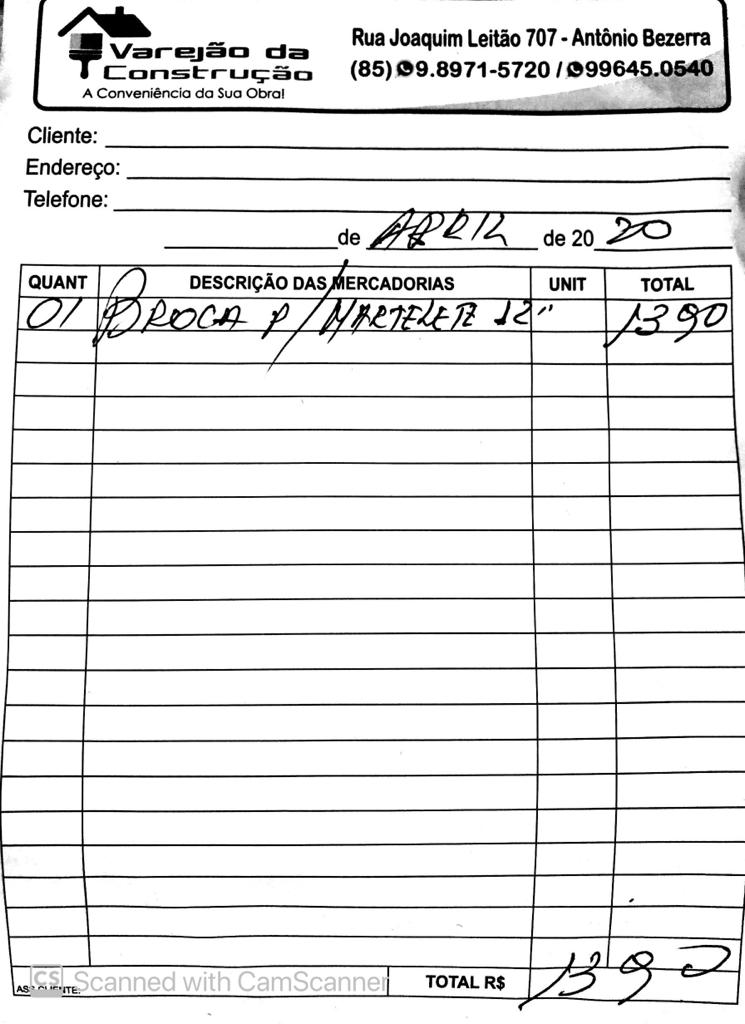 Varejão da
Construção
A Conveniência da Sua Obra!
Rua Joaquim Leitão 707 - Antônio Bezerra
(85) 9.8971-5720 / 99645.0540
Cliente:
Endereço:
Telefone:
de ABRIL de 20 20
QUANT DESCRIÇÃO DAS MERCADORIAS UNIT TOTAL
01 BROCA P/ MARTELETE 12" 13 90
ASS CLIENTE:
CS Scanned with CamScanner
TOTAL R$ 13 90